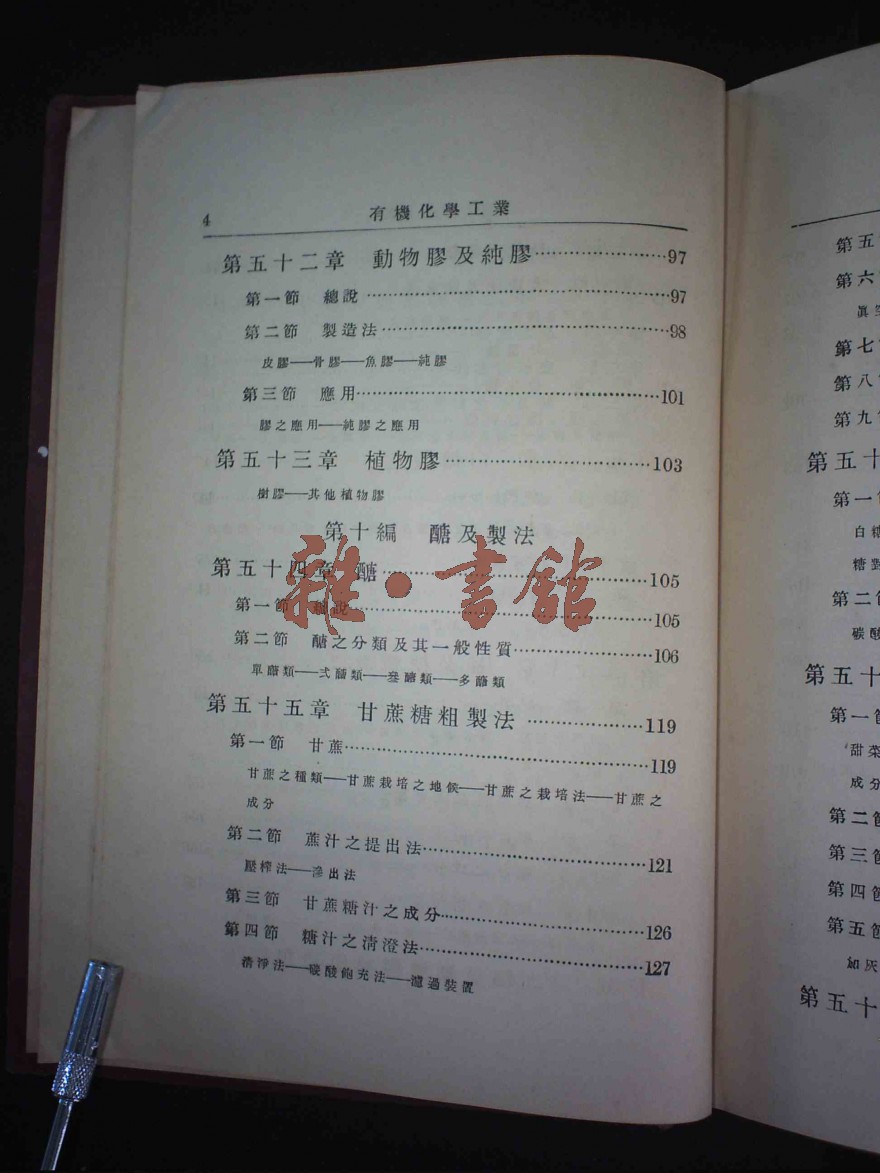 4
有機化學工業
第五十二章 動物膠及純膠……………97
第一節 總說……………97
第二節 製造法……………98
皮膠——骨膠——魚膠——純膠
第三節 應用……………101
膠之應用——純膠之應用
第五十三章 植物膠……………103
樹膠——其他植物膠
第十編 醣及製法
第五十四章 醣……………105
第一節 總說……………105
第二節 醣之分類及其一般性質……………106
單醣類——弍醣類——叄醣類——多醣類
第五十五章 甘蔗糖粗製法……………119
第一節 甘蔗……………119
甘蔗之種類——甘蔗栽培之地候——甘蔗之栽培法——甘蔗之
成分
第二節 蔗汁之提出法……………121
壓榨法——滲出法
第三節 甘蔗糖汁之成分……………126
第四節 糖汁之清澄法……………127
清淨法——碳酸飽充法——濾過裝置
雜·書館
第五
第六
第七
第八
第九
第五十
第一
白糖
糖對
第二
碳酸
第五十
第一
甜菜
成分
第二
第三
第四
第五
如灰
第五十